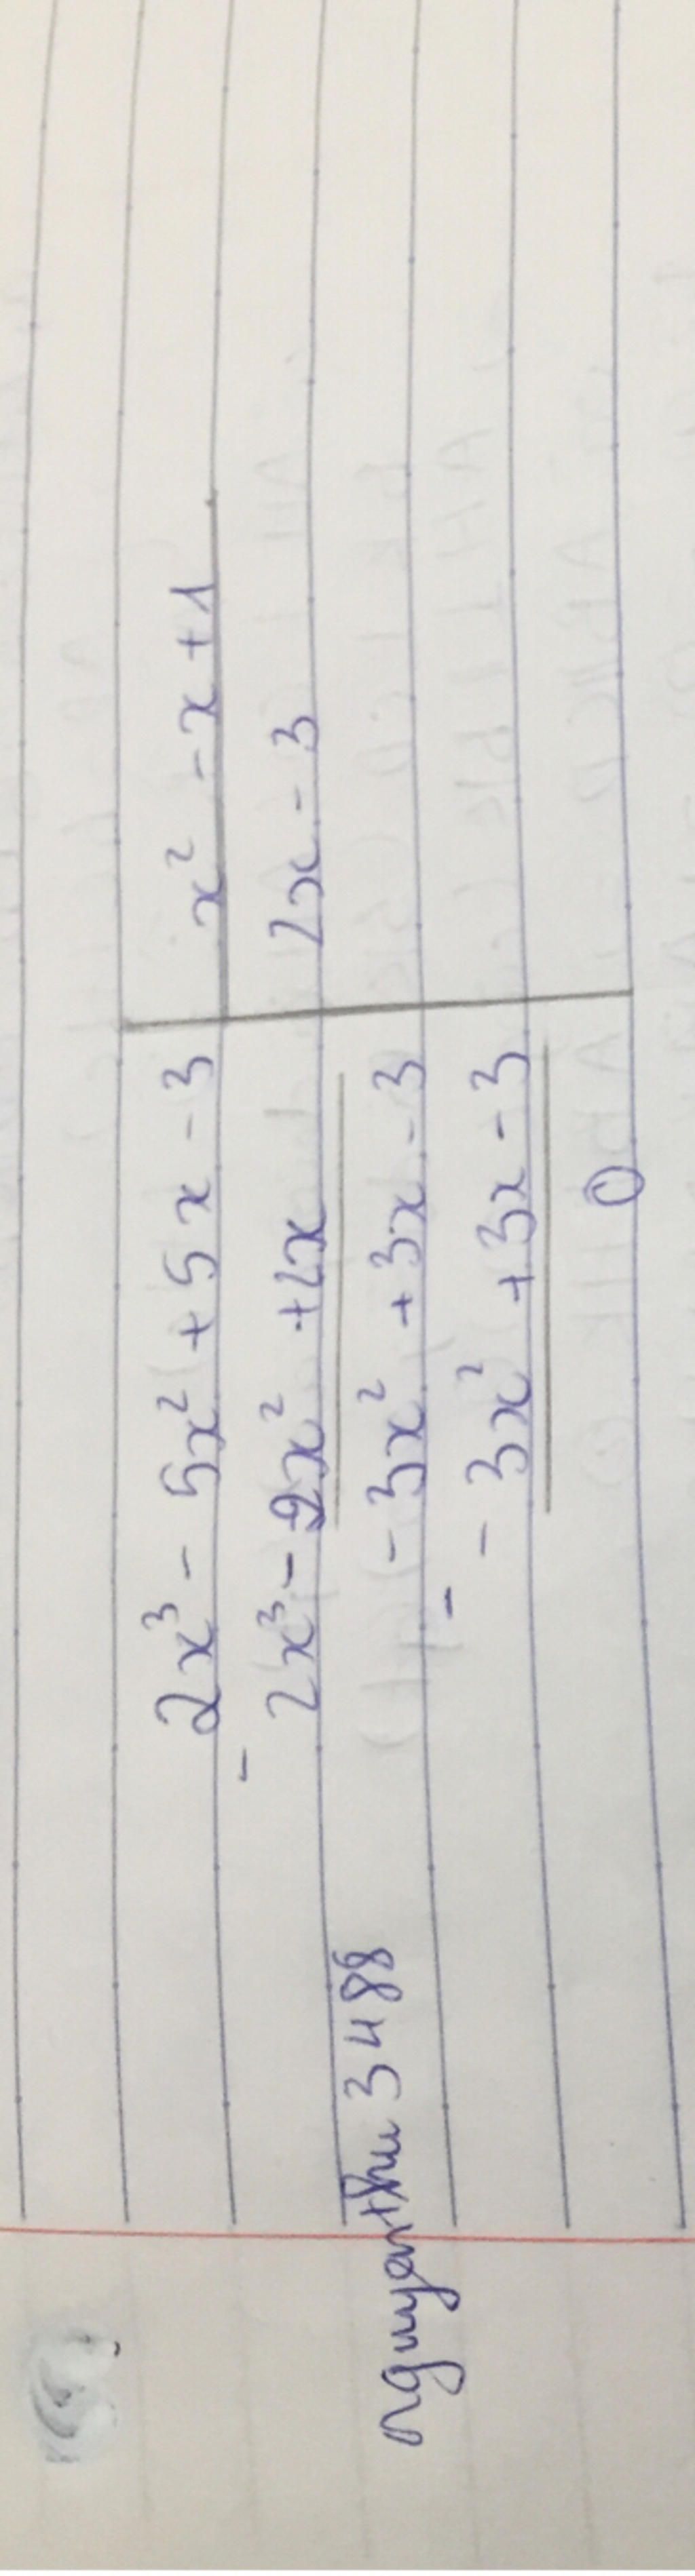 2x³ - 5x² + 5x - 3 | x² - x + 1
- 2x³ - 2x² + 2x | 2x - 3
- 3x² + 3x - 3
- - 3x² + 3x - 3
0
nguyenthu3488